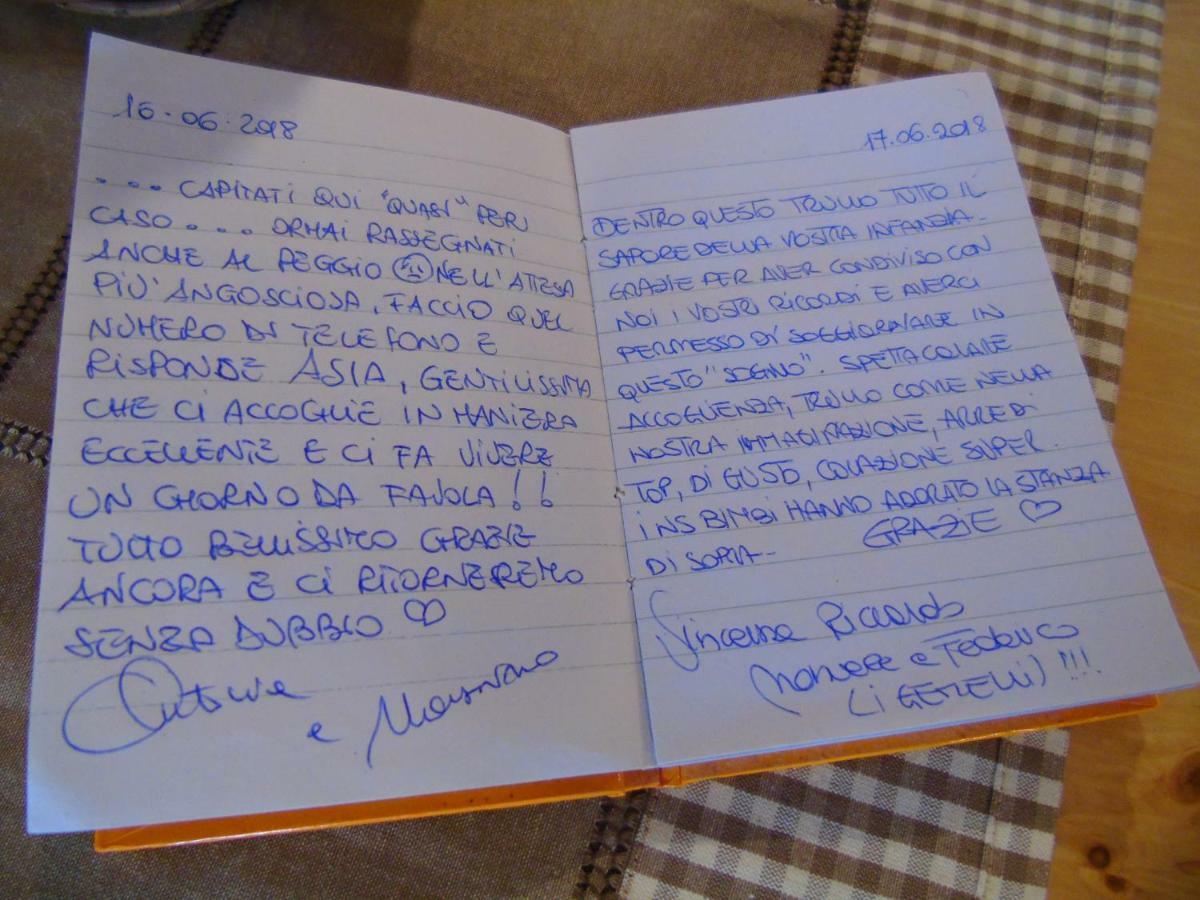 16.06.2018
.... CAPITATI QUI "QUASI" PER
CASO.... ORMAI RASSEGNATI
ANCHE AL PEGGIO NELL'ATTESA
PIU' ANGOSCIOSA, FACCIO QUEL
NUMERO DI TELEFONO E
RISPONDE ASIA, GENTILISSIMA
CHE CI ACCOGLIE IN MANIERA
ECCELLENTE E CI FA VIVERE
UN GIORNO DA FAVOLA!!
TUTTO BELLISSIMO GRAZIE
ANCORA E CI RITORNEREMO
SENZA DUBBIO ♡
e
17.06.2018
DENTRO QUESTO TRULLO TUTTO IL
SAPORE DELLA VOSTRA INFANZIA.
GRAZIE PER AVER CONDIVISO CON
NOI I VOSTRI RICORDI E AVERCI
PERMESSO DI SOGGIORNARE IN
QUESTO "SOGNO". SPETTACOLARE
ACCOGLIENZA, TRULLO COME NELLA
NOSTRA IMMAGINAZIONE, ARREDI
TOP, DI GUSTO, COLAZIONE SUPER.
I NS BIMBI HANNO ADORATO LA STANZA
DI SOPRA- GRAZIE ♡
Riccardo
e Federico
(I GEMELLI) !!!